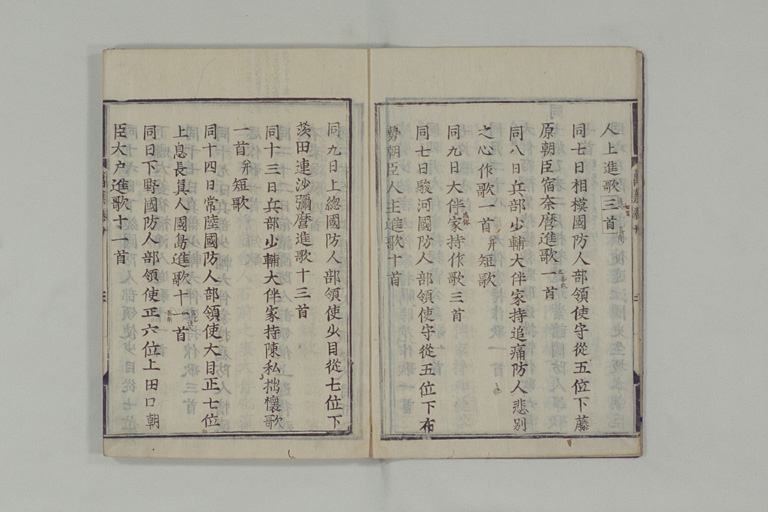 人上進歌三首
同七日相模國防人部領使守從五位下藤
原朝臣宿奈麿進歌一首
同八日兵部少輔大伴家持追痛防人悲別
之心作歌一首并短歌
同九日大伴家持作歌三首
同七日駿河國防人部領使守從五位下布
勢朝臣人主進歌十首
同九日上總國防人部領使少目從七位下
茨田連沙彌麿進歌十三首
同十三日兵部少輔大伴家持陳私拙懷歌
一首并短歌
同十四日常陸國防人部領使大目正七位
上息長真人國島進歌十一首
同日下野國防人部領使正六位上田口朝
臣大戶進歌十一首